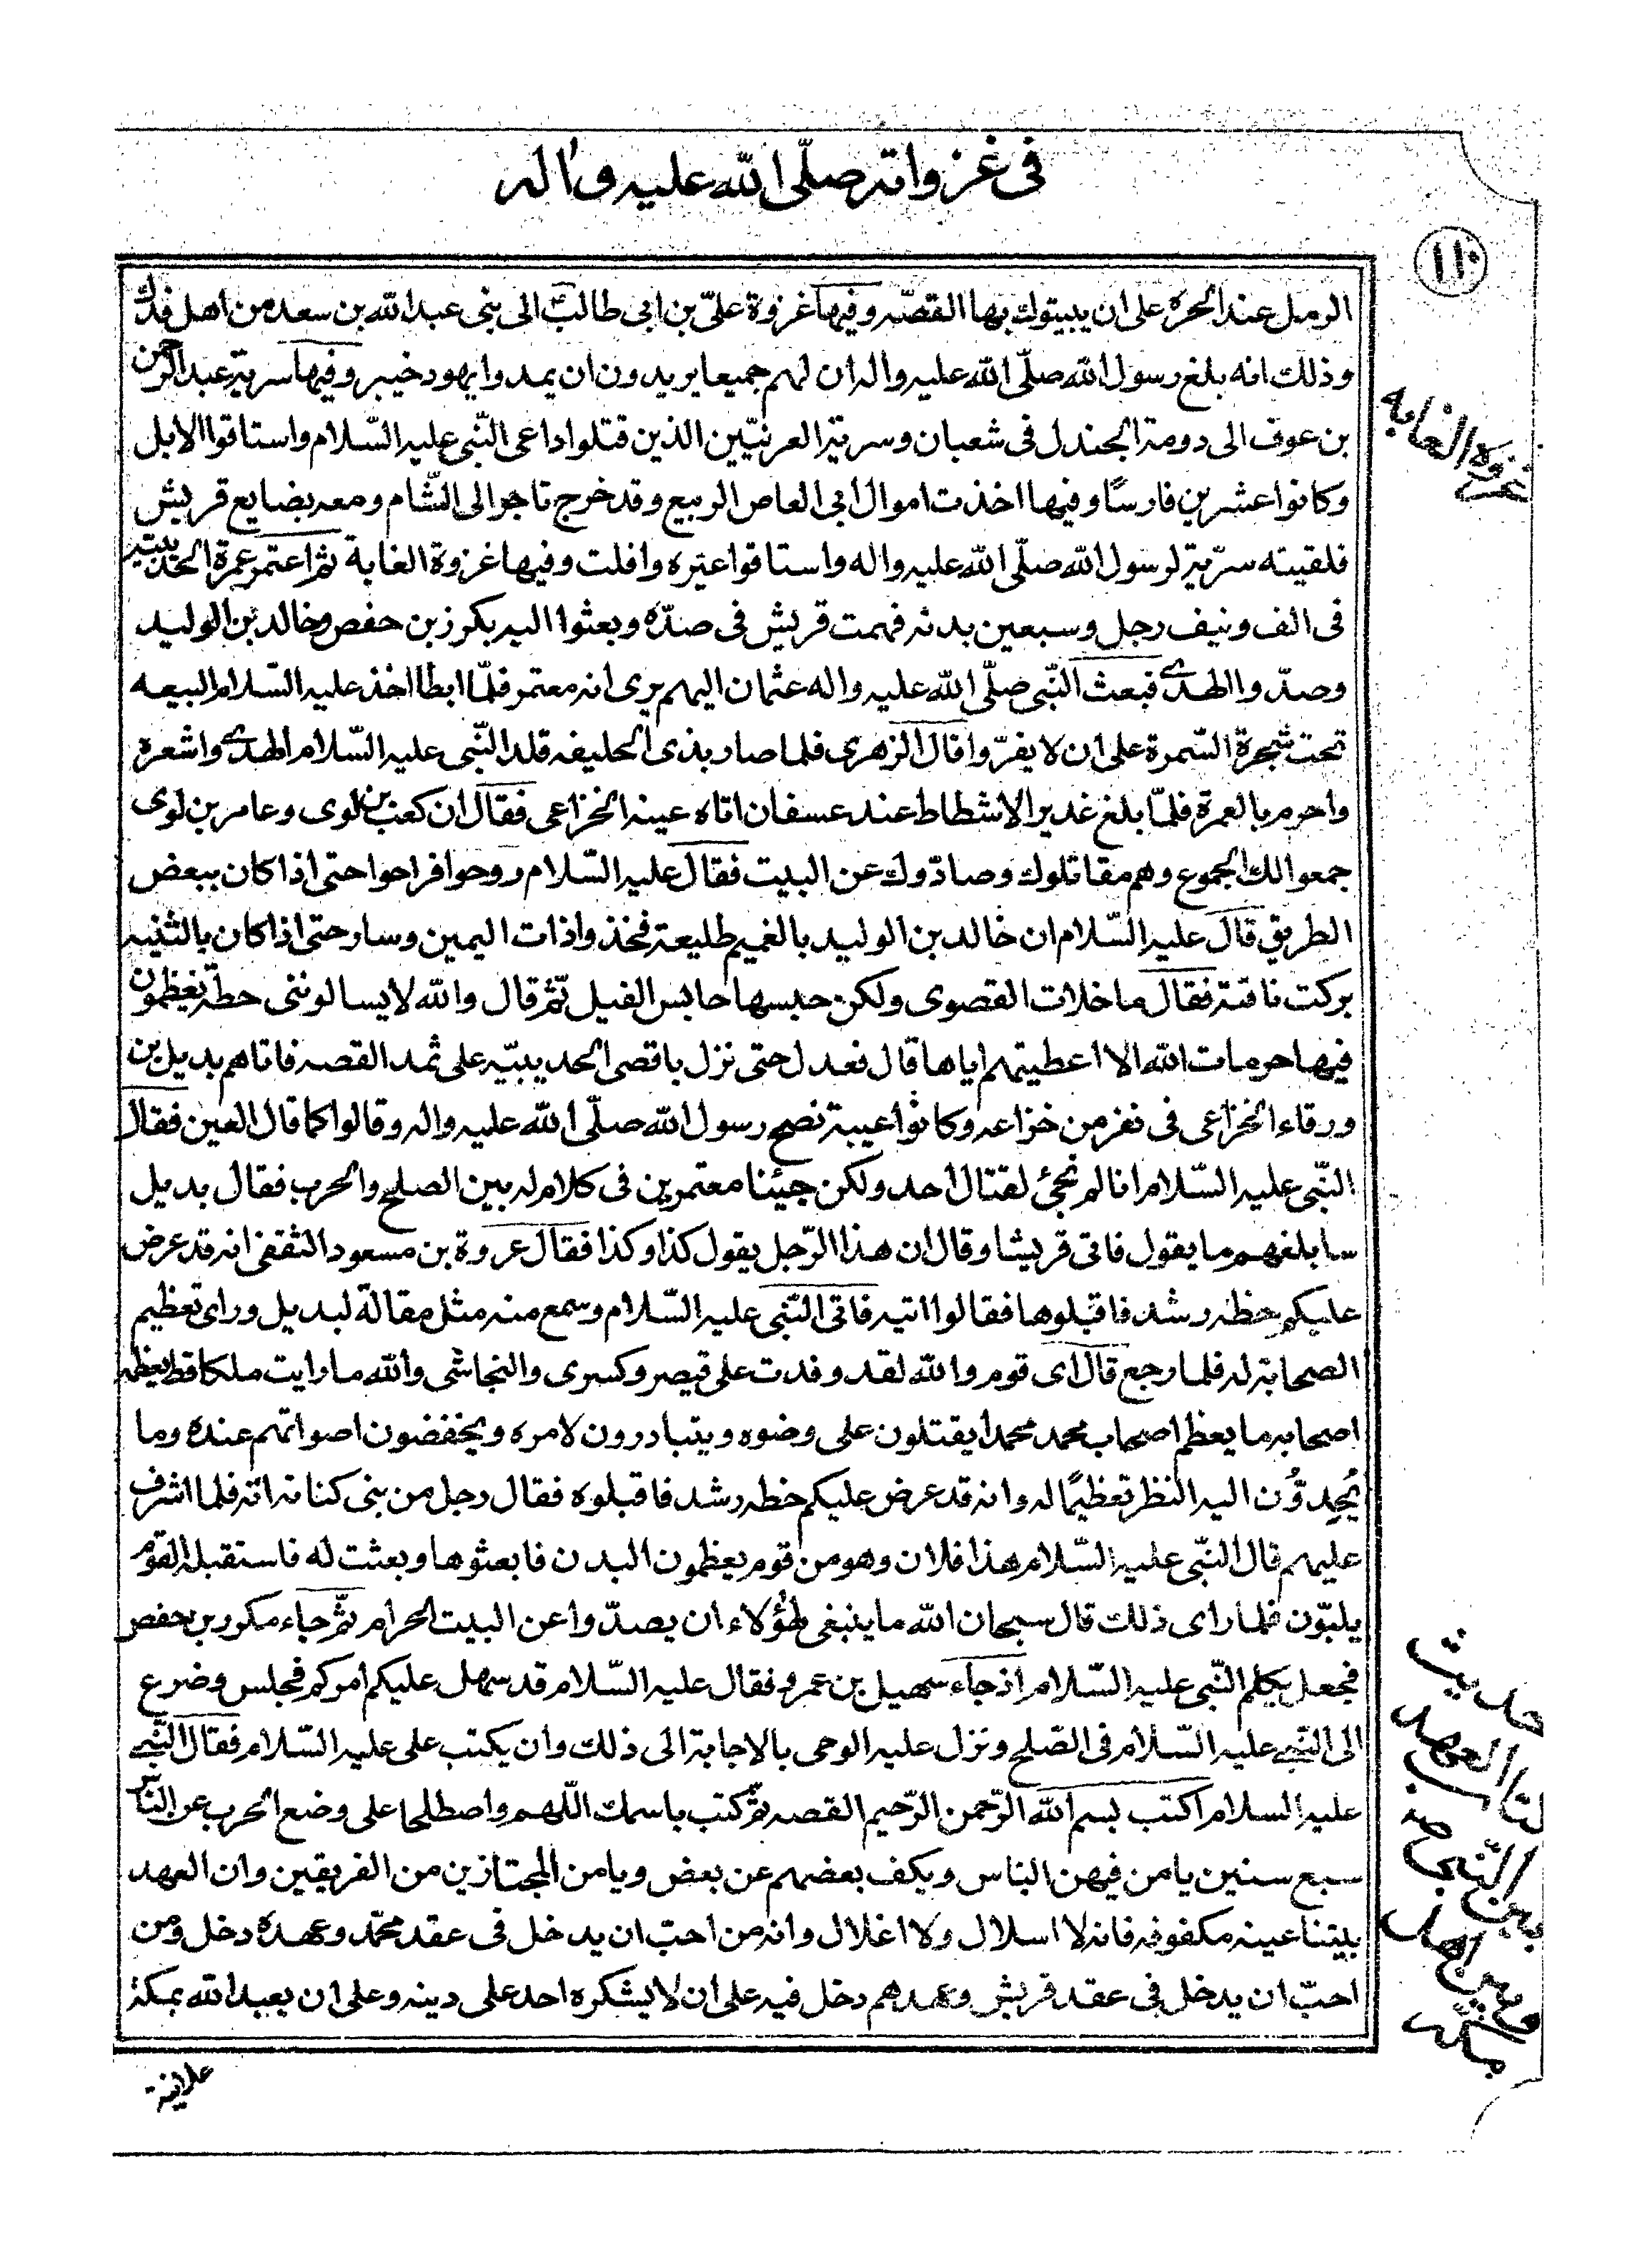 في غزواته صلّى الله عليه واله
١١٠
الرمل عند الحرة على ان يبيتوك بها القصّه وفيها غزوة علىّ بن ابى طالبؑ الى بنى عبد الله بن سعد من اهل فدك
وذلك انه بلغ رسول الله صلّى الله عليه واله ان لهم جميعا يريدون ان يمدوا يهود خيبر وفيها سرية عبد الرحمن
غزوه الغابه
بن عوف الى دومة الجندل فى شعبان وسرية العرنيّين الذين قتلوا داعى النّبى عليه السّلام واستاقوا الابل
وكانوا عشرين فارسًا وفيها اخذت اموال ابى العاص الربيع وقد خرج تاجرا الى الشّام ومعه بضايع قريش
فلقيته سرّية لرسول الله صلّى الله عليه واله واستاقوا عيره وافلت وفيها غزوة الغابة ثم اعتمر عمرة الحديبيّه
فى الف ونيف رجل وسبعين بدنه فهمت قريش فى صدّه وبعثوا اليه بكرز بن حفص وخالد بن الوليد
وصدّوا الهدى فبعث النّبى صلّى الله عليه واله عثمان اليهم يرى انه معتمر فلمّا ابطا اخذ عليه السّلام البيعه
تحت شجرة السّمرة على ان لا يفرّوا قال الزهرى فلما صار بذى الحليفه قلد النّبى عليه السّلام الهدى واشعره
واحرم بالعمرة فلمّا بلغ غدير الاشطاط عند عسفان اتاه عينه الخزاعى فقال ان كعب بن لوى وعامر بن لوى
جمعوا لك الجموع وهم مقاتلوك وصادّوك عن البيت فقال عليه السّلام روحوا فراحوا حتى اذا كان ببعض
الطريق قال عليه السّلام ان خالد بن الوليد بالغميم طليعة فخذوا ذات اليمين وسار حتى اذا كان بالثنيه
بركت ناقته فقال ما خلات القصوى ولكن حبسها حابس الفيل ثمّ قال والله لا يسالوننى خطّة يعظمون
فيها حرمات الله الا اعطيتهم اياها قال فعدل حتى نزل باقصى الحديبيّه على ثمد القصه فاتاهم بديل بن
ورقاء الخزاعى فى نفر من خزاعه وكانوا عيبة نصح رسول الله صلّى الله عليه واله وقالوا كما قال العين فقال
النّبى عليه السّلام انا لم نجئ لقتال احد ولكن جيئنا معتمرين فى كلام له بين الصلح والحرب فقال بديل
سابلغهم ما يقول فاتى قريشا وقال ان هذا الرّجل يقول كذا وكذا فقال عروة بن مسعود الثقفى انه قد عرض
عليكم خطه رشد فاقبلوها فقالوا اتيه فاتى النّبى عليه السّلام وسمع منه مثل مقالة لبديل وراى تعظيم
الصحابة له فلما رجع قال اى قوم والله لقد وفدت على قيصر وكسرى والنجاشى والله ما رايت ملكا قط يعظمه
اصحابه ما يعظم اصحاب محمد محمدا يقتتلون على وضوه ويتبادرون لامره ويخفضون اصواتهم عنده وما
يُحِدوُّن اليه النظر تعظيمًا له وانه قد عرض عليكم خطه رشد فاقبلوه فقال رجل من بنى كنانه اته فلما اشرف
عليهم قال النّبى عليه السّلام هذا فلان وهو من قوم يعظمون البدن فابعثوها وبعثت له فاستقبله القوم
يلبّون فلما راى ذلك قال سبحان الله ما ينبغى لهؤلاء ان يصدّوا عن البيت الحرام ثمّ جاء مكرز بن حفص
فجعل يكلم النّبى عليه السّلام اذ جاء سهيل بن عمرو فقال عليه السّلام قد سهل عليكم امركم فجلس وضرع
الى النّبى عليه السّلام فى الصّلح ونزل عليه الوحى بالاجابة الى ذلك وان يكتب على عليه السّلام فقال النّبى
عليه السلام اكتب بسم الله الرّحمن الرّحيم القصه ثمّ كتب باسمك اللّهم واصطلحا على وضع الحرب عن النّاس
سبع سنين يامن فيهن الناس ويكف بعضهم عن بعض ويامن المجتازين من الفريقين وان العهد
بيننا عيبه مكفوفه فانه لا اسلال ولا اغلال وانه من احبّ ان يدخل فى عقد محمّد وعهده دخل ومن
احبّ ان يدخل فى عقد قريش وعهدهم دخل فيه على ان لا يشكره احد على دينه وعلى ان يعبد الله بمكة
حديث
العهد
بين النّبى ص
وبين اهل
مكّه
علانية